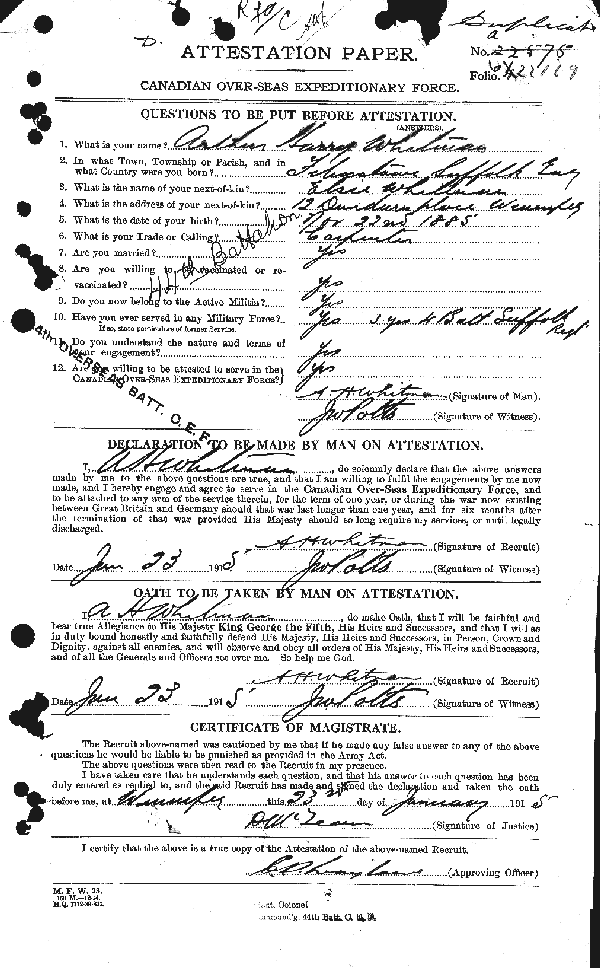 Duplicate
D.
ATTESTATION PAPER.
No. 22575
Folio.
CANADIAN OVER-SEAS EXPEDITIONARY FORCE.
QUESTIONS TO BE PUT BEFORE ATTESTATION.
(ANSWERS).
1. What is your name? Arthur Harry Whitman
2. In what Town, Township or Parish, and in
what Country were you born? Suffolk Eng
3. What is the name of your next-of-kin? Elsie Whitman
4. What is the address of your next-of-kin? 12 place Winnipeg
5. What is the date of your birth? Nov 22nd 1885
6. What is your Trade or Calling? Carpenter
7. Are you married? Yes
8. Are you willing to be vaccinated or re-
vaccinated? Yes
44th Battalion
9. Do you now belong to the Active Militia? Yes
10. Have you ever served in any Military Force? Yes 3 yrs 4 Batt Suffolk Regt
If so, state particulars of former Service.
11. Do you understand the nature and terms of
your engagement? Yes
12. Are you willing to be attested to serve in the
CANADIAN OVER-SEAS EXPEDITIONARY FORCE? Yes
44th OVERSEAS BATT. C. E. F.
A H Whitman (Signature of Man).
Jno Potts (Signature of Witness).
DECLARATION TO BE MADE BY MAN ON ATTESTATION.
I, A H Whitman, do solemnly declare that the above answers
made by me to the above questions are true, and that I am willing to fulfil the engagements by me now
made, and I hereby engage and agree to serve in the Canadian Over-Seas Expeditionary Force, and
to be attached to any arm of the service therein, for the term of one year, or during the war now existing
between Great Britain and Germany should that war last longer than one year, and for six months after
the termination of that war provided His Majesty should so long require my services, or until legally
discharged.
A H Whitman (Signature of Recruit)
Date Jan 23 1915 Jno Potts (Signature of Witness)
OATH TO BE TAKEN BY MAN ON ATTESTATION.
I, A H Whitman, do make Oath, that I will be faithful and
bear true Allegiance to His Majesty King George the Fifth, His Heirs and Successors, and that I will as
in duty bound honestly and faithfully defend His Majesty, His Heirs and Successors, in Person, Crown and
Dignity, against all enemies, and will observe and obey all orders of His Majesty, His Heirs and Successors,
and of all the Generals and Officers set over me. So help me God.
A H Whitman (Signature of Recruit)
Date Jan 23 1915 Jno Potts (Signature of Witness)
CERTIFICATE OF MAGISTRATE.
The Recruit above-named was cautioned by me that if he made any false answer to any of the above
questions he would be liable to be punished as provided in the Army Act.
The above questions were then read to the Recruit in my presence.
I have taken care that he understands each question, and that his answer to each question has been
duly entered as replied to, and the said Recruit has made and signed the declaration and taken the oath
before me, at Winnipeg this 23 day of January 1915
(Signature of Justice)
I certify that the above is a true copy of the Attestation of the above-named Recruit.
(Approving Officer)
M. F. W. 23.
Colonel
44th Batt. C. E. F.